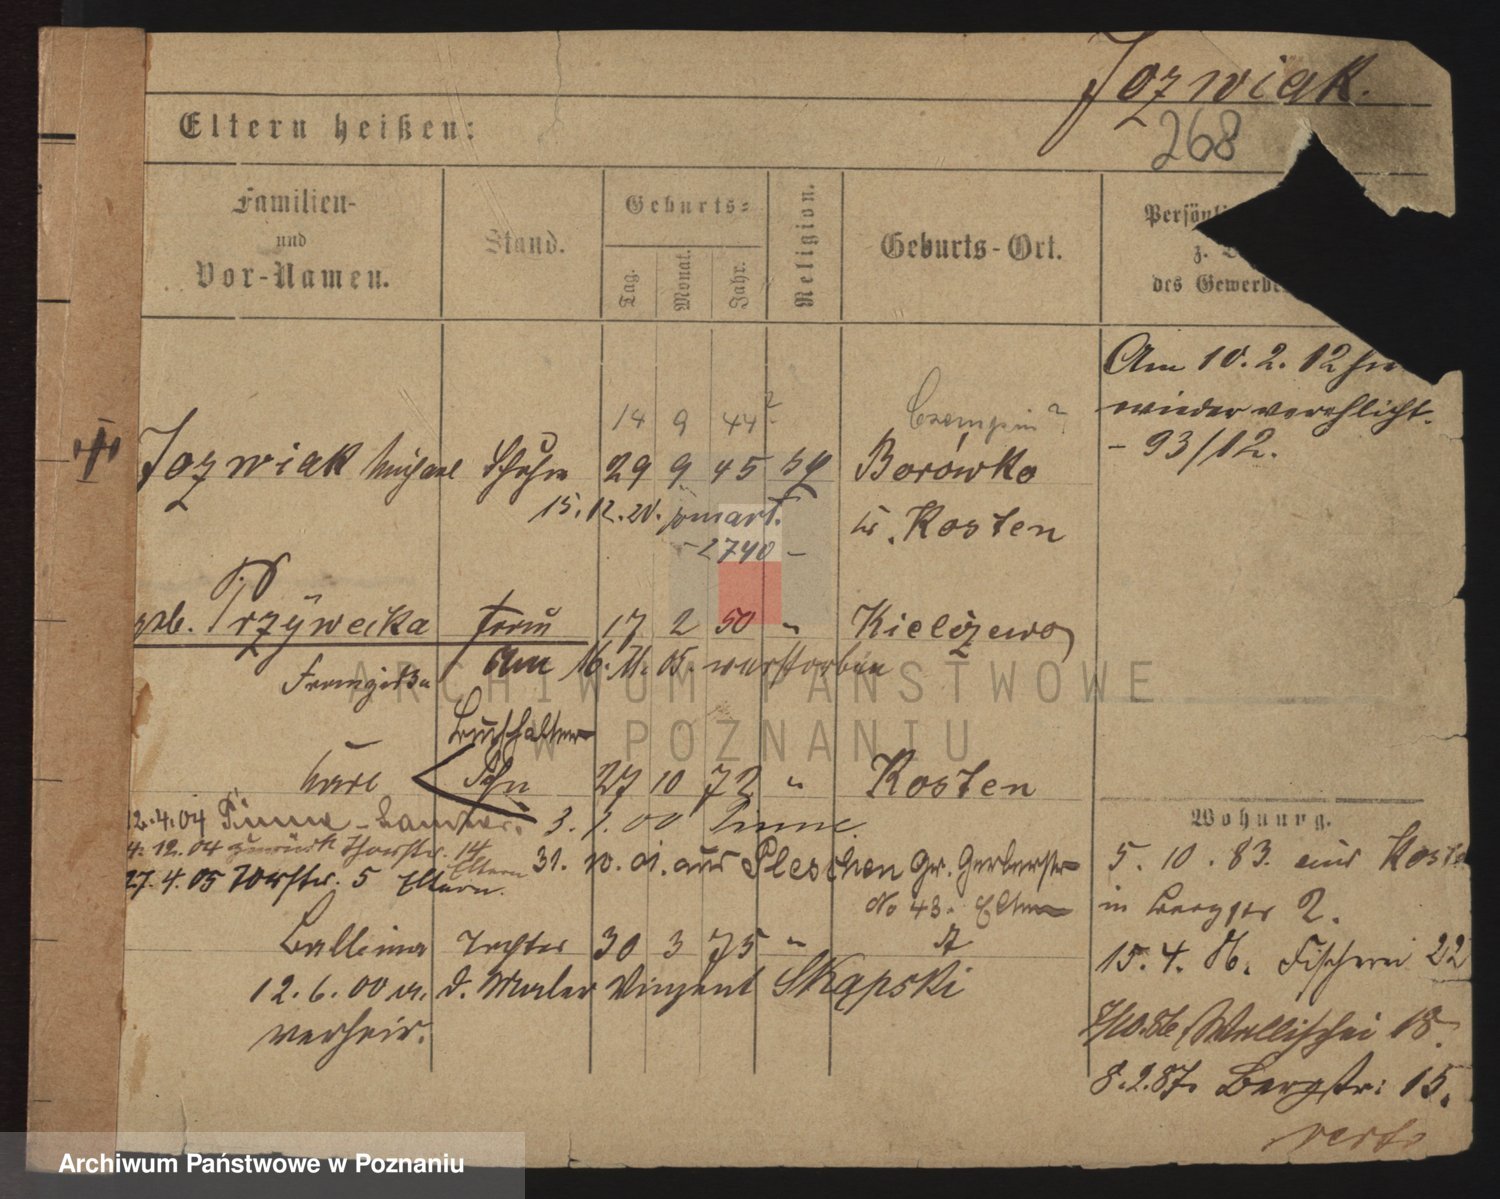 Jozwiak.
268
Eltern heißen:
Familien-
und
Vor-Namen.
Stand.
Geburts-
Tag.
Monat.
Jahr.
Religion.
Geburts-Ort.
Persönli
z.
des Gewerbe
Am 10. 2. 12
wieder verehlicht.
- 93/12.
14 9 44?
Czempin?
Jozwiak Michael Schuhm 29 9 45 Borówko
15. 12. 20.
- 2740 -
Kr. Kosten
geb. Przywecka Frau 17 2 50 " Kielczewo
Franziska
Am 16. 11. 05. verstorben
Buchhalter
Karl Sohn 27 10 72 " Kosten
3. 1. 00 Pinne.
12.4.04 Pinne
4. 12. 04 zurück Thorstr. 14 Eltern
27. 4. 05 Thorstr. 5 Eltern.
31. 10. 01. aus Pleschen Gr. Gerberstr
No 43. Eltern
Tochter 30 3 75 "
12. 6. 00 d. Maler Vinzent Skąpski
verheir.
Wohnung.
5. 10. 83. aus Kosten
in Bergstr 2.
15. 4. 86. Fischerei 22
7/10.86 Wallischei 18.
8.2.87. Bergstr: 15.
verte
ARCHIWUM PAŃSTWOWE
W POZNANIU
Archiwum Państwowe w Poznaniu